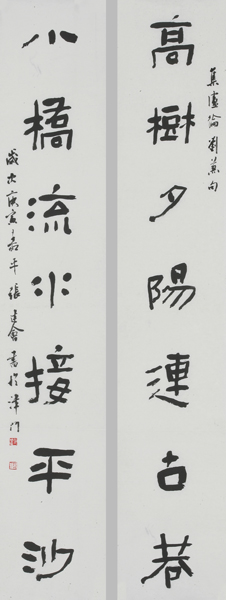 集盧綸劉兼句
高樹夕陽連古巷
小橋流水接平沙
歲次庚寅之嘉平張建會書於津門